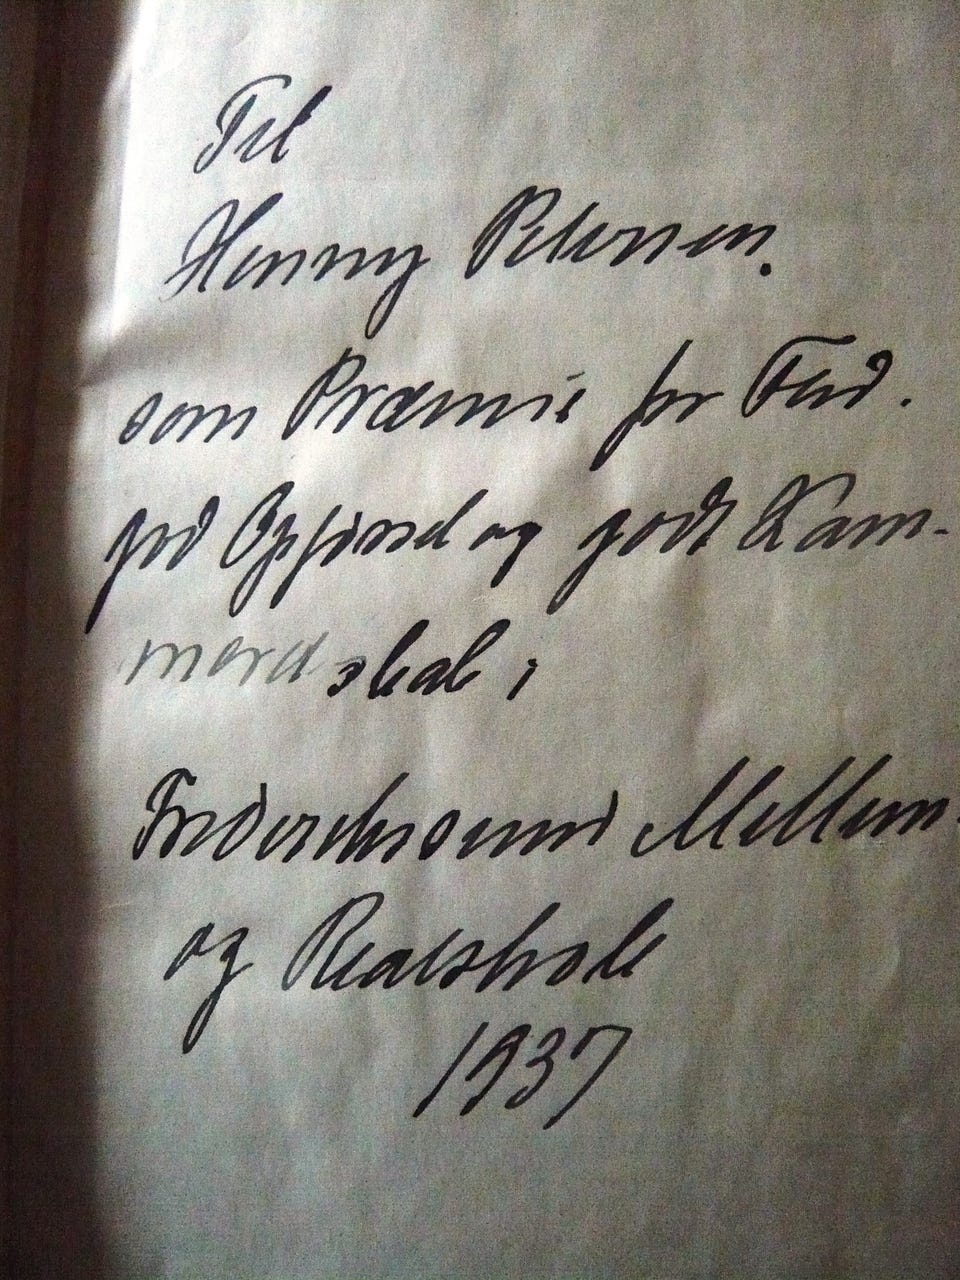 Til
Henny Petersen.
som Præmie for Flid.
god Opførsel og godt Kam-
meratskab i
Frederikssund Mellem-
og Realskole
1937